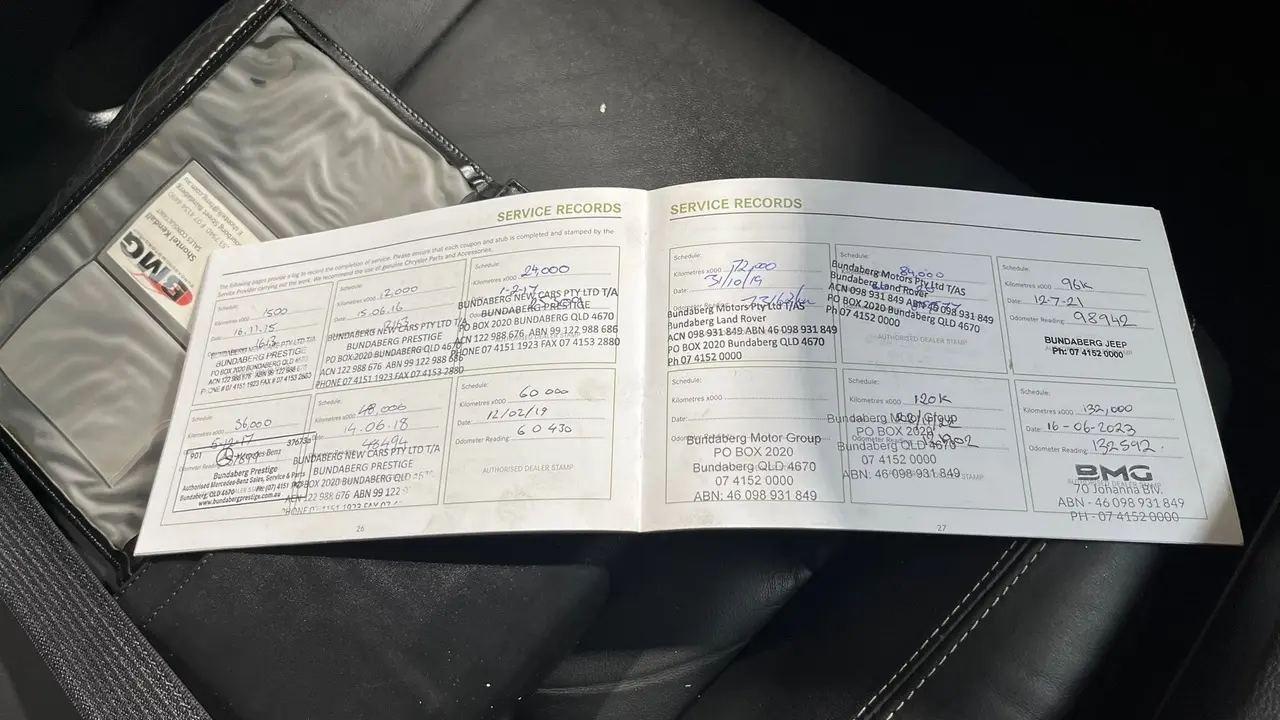 SERVICE RECORDS
The following pages provide a log to record the completion of service. Please ensure that each coupon and stub is completed and stamped by the
Service Provider carrying out the work. We recommend the use of genuine Chrysler Parts and Accessories.
Schedule:
Kilometres x000 1500
Date: 16.11.15
BUNDABERG PRESTIGE
Schedule:
Kilometres x000 12000
Date: 15.06.16
BUNDABERG NEW CARS PTY LTD T/A
BUNDABERG PRESTIGE
PO BOX 2020 BUNDABERG QLD 4670
ACN 122 988 676 ABN 99 122 988 686
PHONE 07 4151 1923 FAX 07 4153 2880
Schedule:
Kilometres x000 24,000
Date: 1-2-17
BUNDABERG NEW CARS PTY LTD T/A
BUNDABERG PRESTIGE
PO BOX 2020 BUNDABERG QLD 4670
ACN 122 988 676 ABN 99 122 988 686
PHONE 07 4151 1923 FAX 07 4153 2880
Schedule:
Kilometres x000 36,000
901
Mercedes Benz
Bundaberg Prestige
Authorised Mercedes-Benz Sales, Service & Parts
Bundaberg, QLD 4670
www.bundabergprestige.com.au
Schedule:
Kilometres x000 48,000
Date: 14.06.18
48494
BUNDABERG NEW CARS PTY LTD T/A
BUNDABERG PRESTIGE
PO BOX 2020 BUNDABERG QLD
ACN 122 988 676 ABN 99 122
Schedule:
Kilometres x000 60 000
Date: 12/02/19
Odometer Reading: 60 430
AUTHORISED DEALER STAMP
26
SERVICE RECORDS
Schedule:
Kilometres x000 72,000
Date: 31/10/19
Odometer Reading:
Bundaberg Motors Pty Ltd T/AS
Bundaberg Land Rover
ACN 098 931 849 ABN 46 098 931 849
PO BOX 2020 Bundaberg QLD 4670
Ph 07 4152 0000
Schedule: 84,000
Bundaberg Motors Pty Ltd T/AS
Bundaberg Land Rover
ACN 098 931 849 ABN 46 098 931 849
PO BOX 2020 Bundaberg QLD 4670
Ph 07 4152 0000
AUTHORISED DEALER STAMP
Schedule:
Kilometres x000 96K
Date: 12-7-21
Odometer Reading: 98942
BUNDABERG JEEP
Ph: 07 4152 0000
Schedule:
Kilometres x000
Date:
Odometer Reading:
Bundaberg Motor Group
PO BOX 2020
Bundaberg QLD 4670
07 4152 0000
ABN: 46 098 931 849
Schedule:
Kilometres x000 120K
Date:
Bundaberg Motor Group
PO BOX 2020
Bundaberg QLD 4670
07 4152 0000
ABN: 46 098 931 849
Schedule:
Kilometres x000 132,000
Date: 16-06-2023
Odometer Reading: 132592
BMG
70 Johanna Blv.
ABN - 46 098 931 849
PH - 07 4152 0000
27
BMG
Shontel Kendall
SALES CONSULTANT